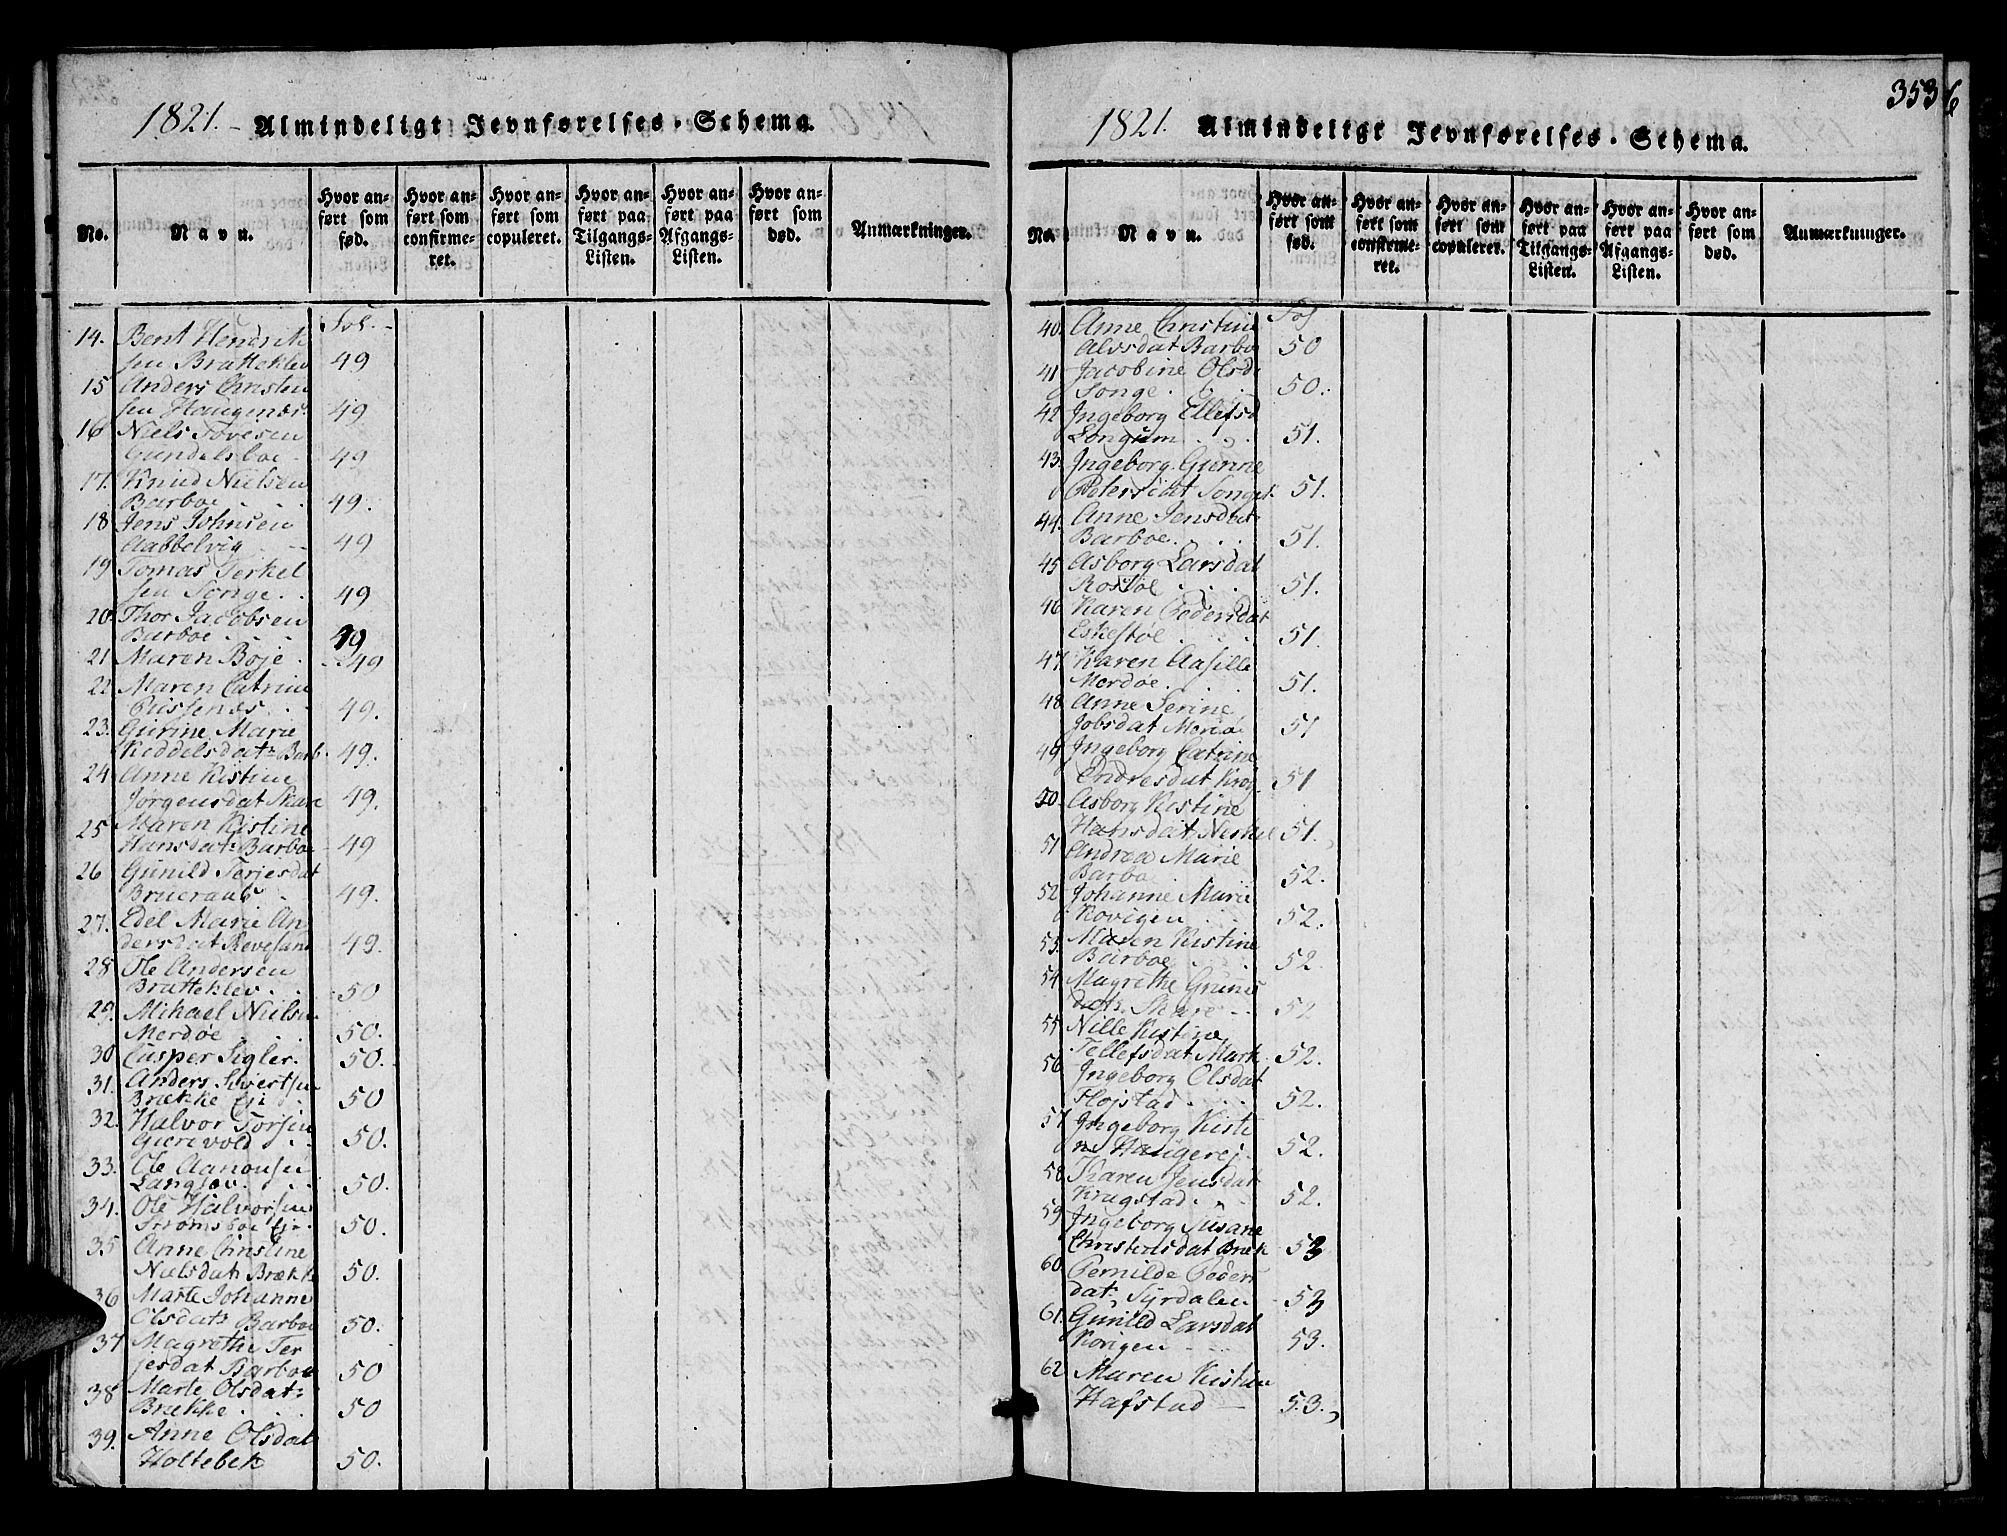 1821. - Almindeligt Jevnførelses-Schema.
No.
Navn.
Hvor anført som fød.
Hvor anført som confirmeret.
Hvor anført som copuleret.
Hvor anført paa Tilgangs-Listen.
Hvor anført paa Afgangs-Listen.
Hvor anført som død.
Anmærkninger.
Fol.
14. Bent Henrik
sen Bratteklev 49
15 Anders Christen
sen Haugenes 49
16 Niels Tovesen
Gundelsboe 49
17. Knud Nielsen
Barboe . . . 49.
18 Jens Johnsen
Aabbelvig 49
19 Tomas Terkel
sen Songe . . 49
20. Thor Jacobsen
Barboe . . . 49
21 Maren Boje . 49
22 Maren Catrine
49.
23. Gurine Marie
Keddelsdatr Barb. 49.
24 Anne Kistine
Jørgensdat Skare 49.
25 Maren Kistine
Hansdatr Barboe 49
26 Gunild Terjesdat
49.
27. Edel Marie An
dersdat Revesand 49.
28 Ole Andersen
Bratteklev . . 50
29. Mikael Nielsen
Merdøe . . . 50.
30 Casper Sigler. 50.
31. Anders Sivertsen
Brække Eje 50
32. Halvor Torsen
50.
33. Ole Aanonsen
50.
34. Ole Halvorsen
Strømsboe Eje. 50.
35 Anne Christine
Nielsdatr Brække 50.
36 Marte Johanne
Olsdatr Barboe 50.
37 Magrethe Ter
jesdat Barboe 50
38 Marte Olsdatr
Brække . . . 50
39. Anne Olsdat
Holtebek 50.
353
6
1821. Almindeligt Jevnførelses-Schema.
No.
Navn.
Hvor anført som fød.
Hvor anført som confirmeret.
Hvor anført som copuleret.
Hvor anført paa Tilgangs-Listen.
Hvor anført paa Afgangs-Listen.
Hvor anført som død.
Anmærkninger.
Fol
40. Anne Christine
Alvsdat Barboe 50
41 Jacobine Olsd
Songe . . . 50.
42 Ingeborg Ellefsd
Longum . . . 51.
43. Ingeborg Gunne
Petersdat Songe 51.
44. Anne Jensdat
Barboe. . . . 51.
45 Asborg Larsdat
51.
46 Karen Pedersdat
51.
47. Karen Aasille
Merdøe. . . . 51.
48. Anne Serine
Jobsdat Merdøe 51
49 Ingeborg Catrine
Endresdat 51
50. Asborg Kistine
Hansdat 51.
51 Andrea Marie
Barboe 52.
52. Johanne Marie
Kovigen . . . 52.
53. Maren Kistine
Barboe . . . 52.
54 Magrethe
datr. Skare . . 52
55. Nille Kistine
Tellefsdat Mærk. 52.
56 Ingeborg Olsdat
Fløjstad . . . 52.
57 Ingeborg Kisti
ne 52.
58. Karen Jensdat
52.
59. Ingeborg Susane
Christensdat Bræk 53
60. Pernilde Peders
dat. Syrdalen 53
61. Gunild Larsdat
53.
62 Maren Kistine
Hafstad 53.